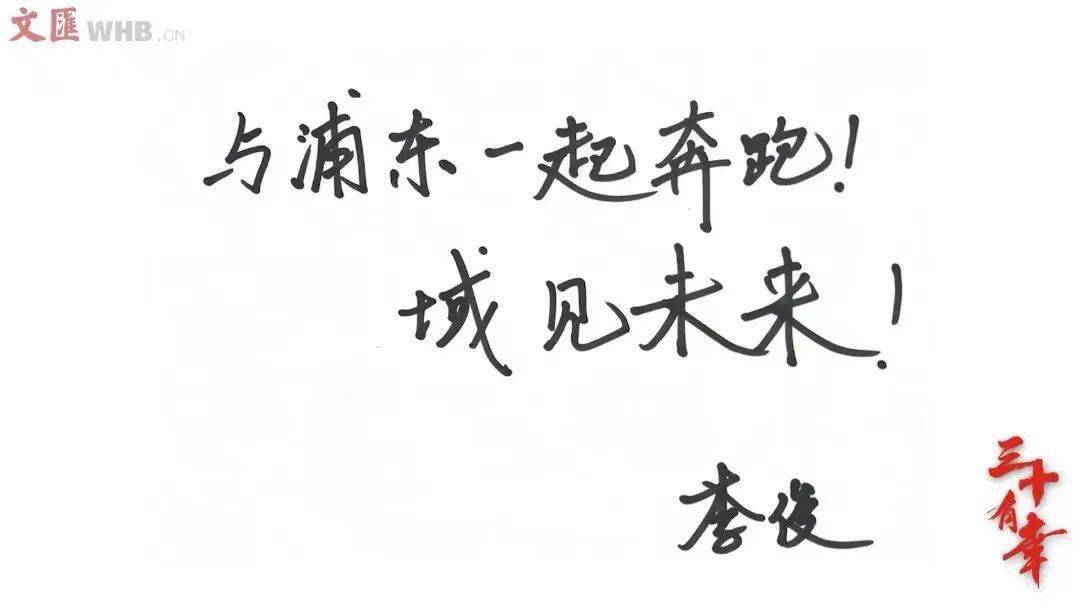 文匯WHB.CN
与浦东一起奔跑!
域见未来!
李俊
三十
有幸